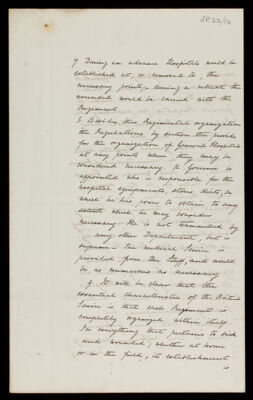 SP.22/13
7 During an advance Hospitals would be
established at, or removed to, the
necessary points, during a retreat the
wounded would be carried with the
Regiment.
8 Besides, this Regimental organization
the Regulations, by section the provide
for the organization of General Hospitals
at any points where they may be
considered necessary. A Governor is
appointed who is responsible for the
hospital equipments, stores, diets, &c
which he has power to obtain to any
extent which he may consider
necessary. He is not trammelled by
any other Department, but is
supreme. The medical Service is
provided from the Staff, and would
be as numerous as necessary
9. It will be clear that the
essential characteristics of the British
Service is that each Regiment is
completely organized within itself.
In everything that pertains to sick
and wounded, whether at home
or in the field, its establishment
is